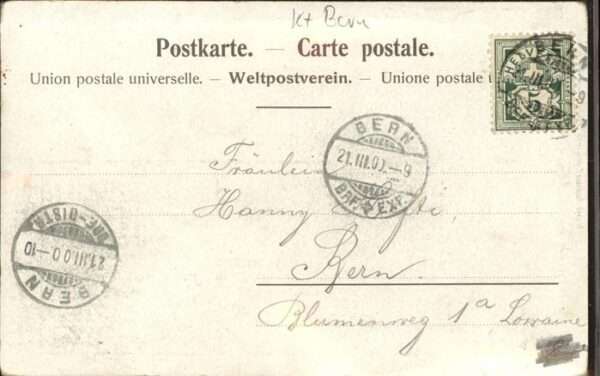 Kt Bern
Postkarte. — Carte postale.
Union postale universelle. — Weltpostverein. — Unione postale u
HELVETIA
5
BERN
21.III.00.-9
BRF. EXP.
Fräulein
Hanny
Bern.
Blumenweg 1a Lorraine
BERN
21.III.00-10
BRF-DISTR.